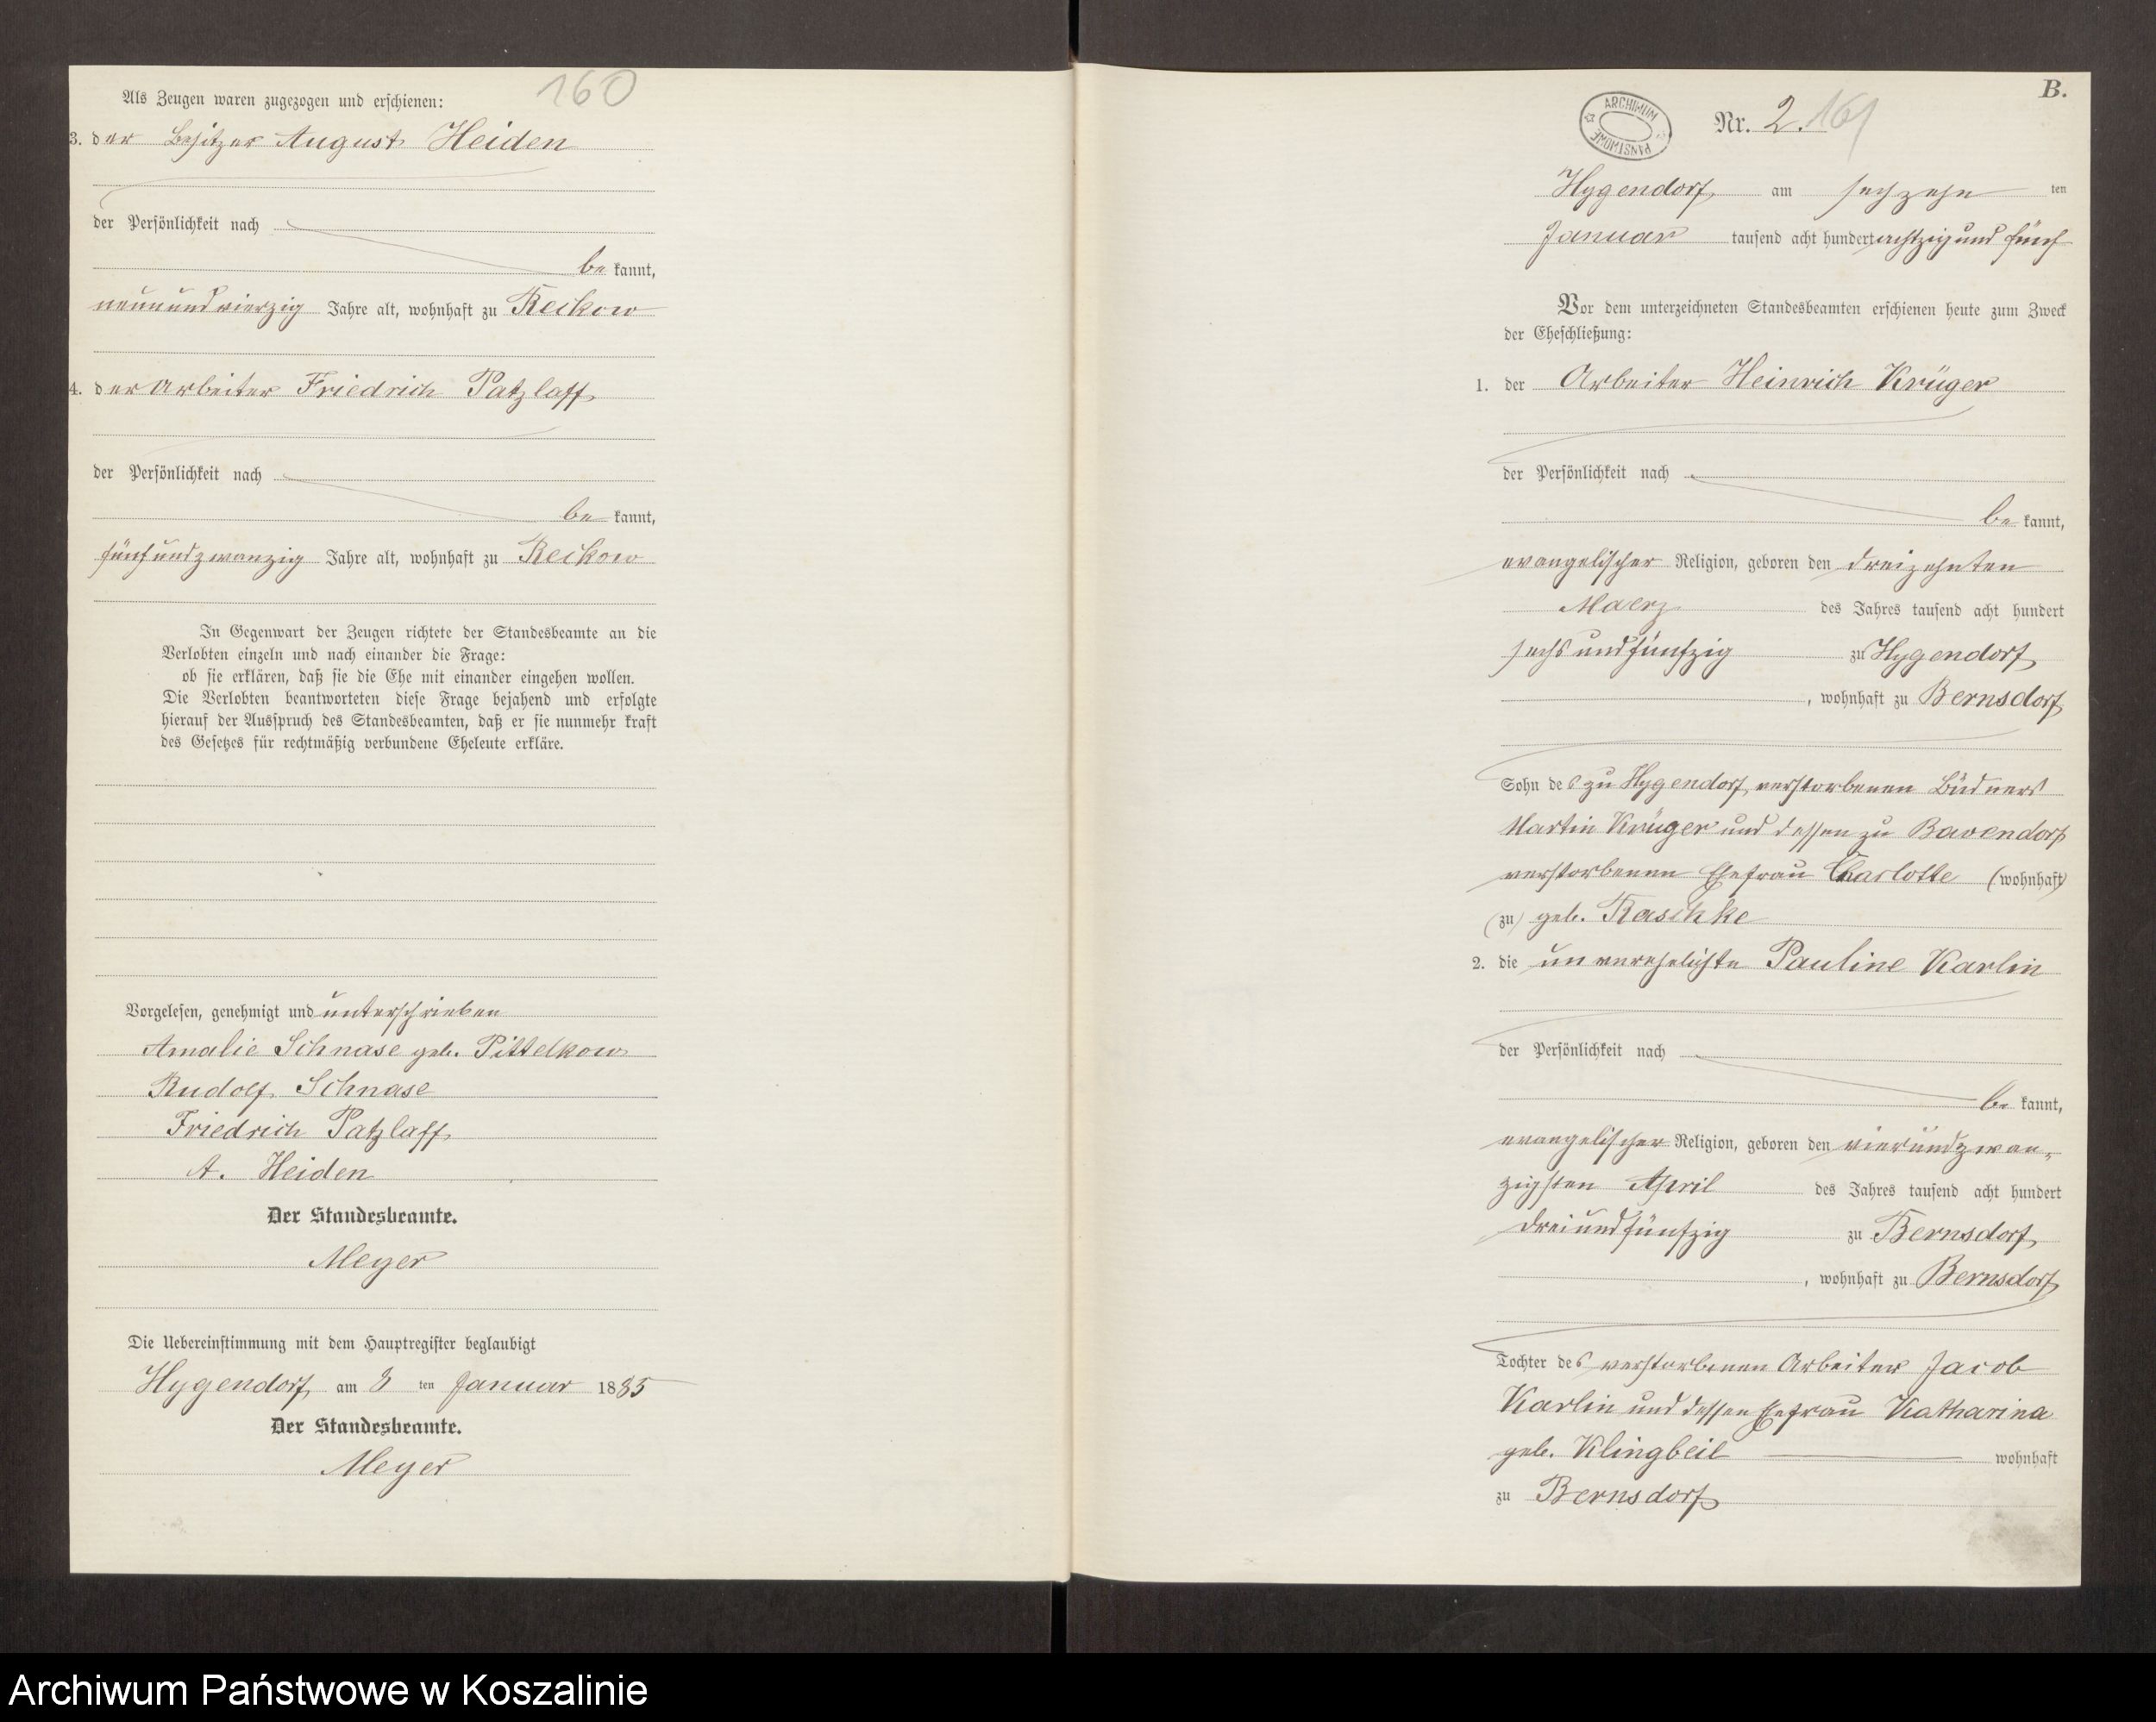 160
Als Zeugen waren zugezogen und erschienen:
3. der Besitzer August Heiden
der Persönlichkeit nach
be kannt,
neunundvierzig Jahre alt, wohnhaft zu Reckow
4. der Arbeiter Friedrich Patzlaff
der Persönlichkeit nach
be kannt,
fünfundzwanzig Jahre alt, wohnhaft zu Reckow
In Gegenwart der Zeugen richtete der Standesbeamte an die
Verlobten einzeln und nach einander die Frage:
ob sie erklären, daß sie die Ehe mit einander eingehen wollen.
Die Verlobten beantworteten diese Frage bejahend und erfolgte
hierauf der Ausspruch des Standesbeamten, daß er sie nunmehr kraft
des Gesetzes für rechtmäßig verbundene Eheleute erkläre.
Vorgelesen, genehmigt und unterschrieben
Amalie Schnase geb. Pittelkow
Rudolf Schnase
Friedrich Patzlaff
A. Heiden
Der Standesbeamte.
Meyer
Die Uebereinstimmung mit dem Hauptregister beglaubigt
Hygendorf, am 8 ten Januar 1885
Der Standesbeamte.
Meyer
B.
ARCHIWUM PAŃSTWOWE
Nr. 2. 161
Hygendorf, am sechzehn ten
Januar tausend acht hundert achtzig und fünf
Vor dem unterzeichneten Standesbeamten erschienen heute zum Zweck
der Eheschließung:
1. der Arbeiter Heinrich Krüger
der Persönlichkeit nach
be kannt,
evangelischer Religion, geboren den dreizehnten
Maerz des Jahres tausend acht hundert
sechs und fünfzig zu Hygendorf
, wohnhaft zu Bernsdorf
Sohn des zu Hygendorf verstorbenen Büdners
Martin Krüger und dessen zu Bavendorf
verstorbenen Ehefrau Charlotte (wohnhaft)
(zu) geb. Raschke
2. die unverehelichte Pauline Karlin
der Persönlichkeit nach
be kannt,
evangelischer Religion, geboren den vierundzwan-
zigsten April des Jahres tausend acht hundert
dreiundfünfzig zu Bernsdorf
, wohnhaft zu Bernsdorf
Tochter des verstorbenen Arbeiter Jacob
Karlin und dessen Ehefrau Katharina
geb. Klingbeil wohnhaft
zu Bernsdorf
Archiwum Państwowe w Koszalinie